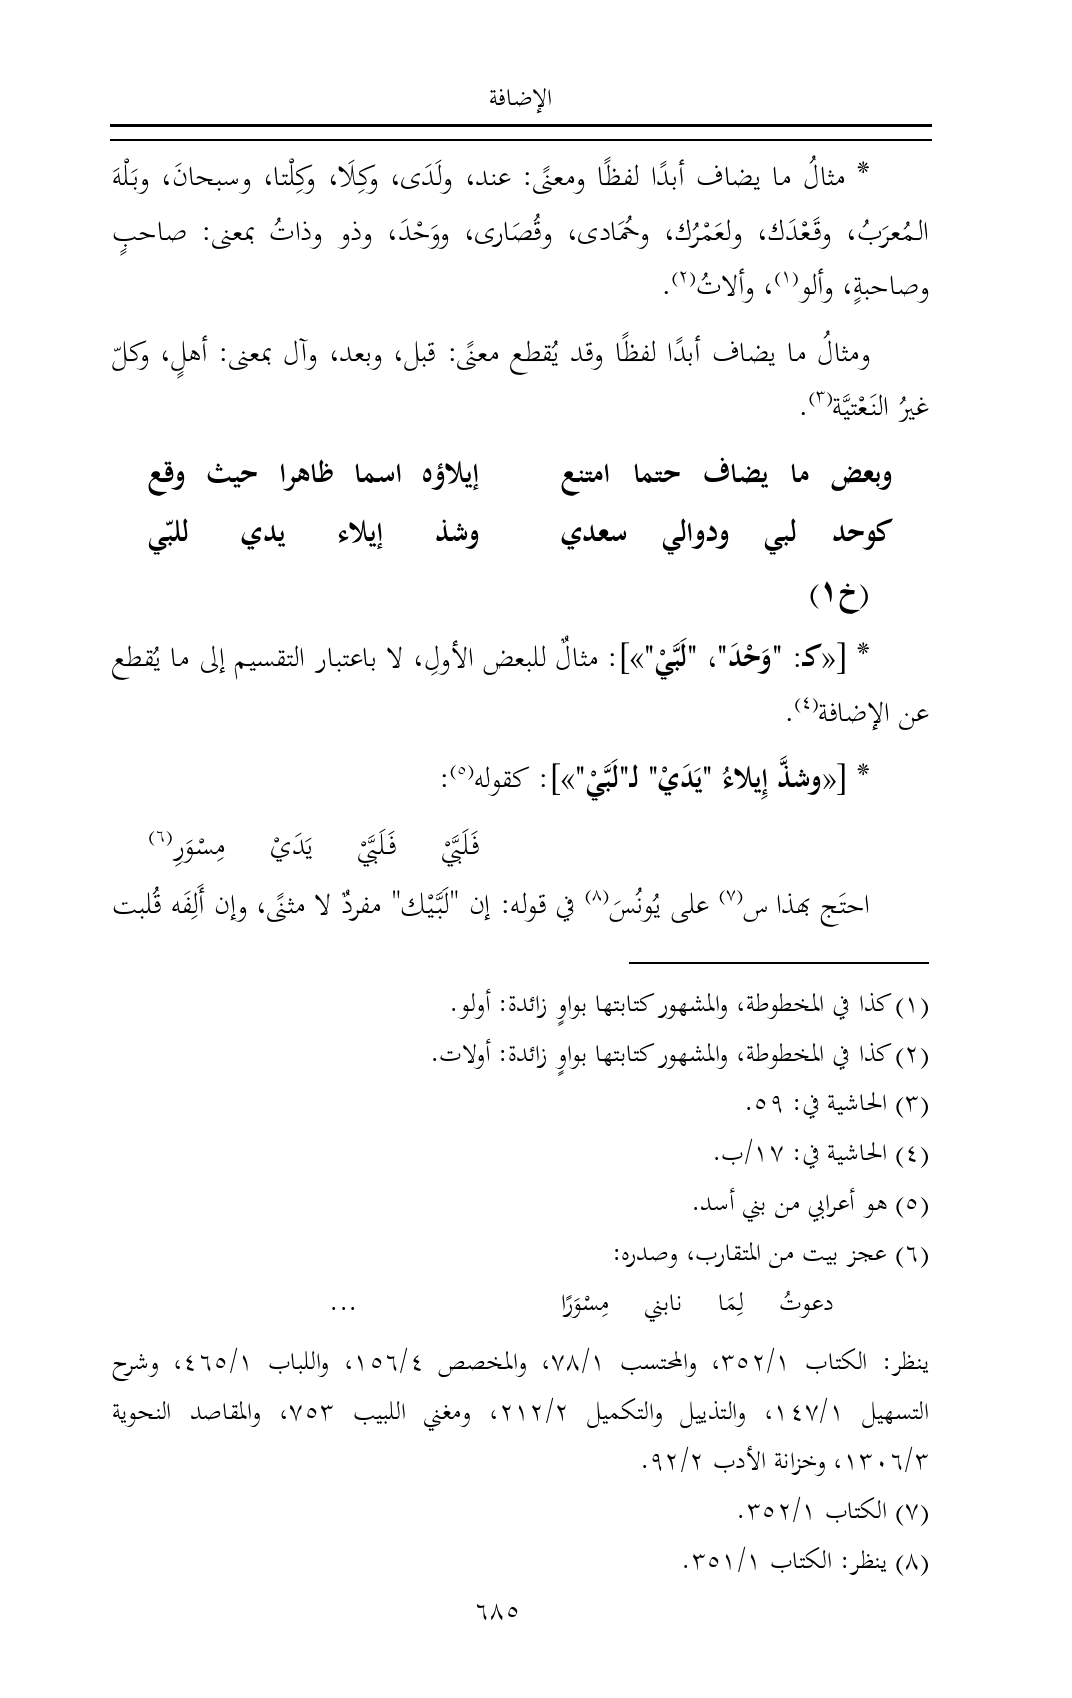 الإضافة
* مثالُ ما يضاف أبدًا لفظًا ومعنًى: عند، ولَدَى، وكِلَا، وكِلْتا، وسبحانَ، وبَلْهَ
المُعرَبُ، وقَعْدَك، ولعَمْرُك، وحُمَادى، وقُصَارى، ووَحْدَ، وذو وذاتُ بمعنى: صاحبٍ
وصاحبةٍ، وألو(١)، وألاتُ(٢).
ومثالُ ما يضاف أبدًا لفظًا وقد يُقطع معنًى: قبل، وبعد، وآل بمعنى: أهلٍ، وكلّ
غيرُ النَعْتيَّة(٣).
وبعض ما يضاف حتما امتنع إيلاؤه اسما ظاهرا حيث وقع
كوحد لبي ودوالي سعدي وشذ إيلاء يدي للبّي
(خ١)
* [«كـ: "وَحْدَ"، "لَبَّيْ"»]: مثالٌ للبعض الأولِ، لا باعتبار التقسيم إلى ما يُقطع
عن الإضافة(٤).
* [«وشذَّ إِيلاءُ "يَدَيْ" لـ"لَبَّيْ"»]: كقوله(٥):
فَلَبَّيْ فَلَبَّيْ يَدَيْ مِسْوَرِ(٦)
احتَج بهذا س(٧) على يُونُسَ(٨) في قوله: إن "لَبَّيْك" مفردٌ لا مثنًى، وإن أَلِفَه قُلبت
(١) كذا في المخطوطة، والمشهور كتابتها بواوٍ زائدة: أولو.
(٢) كذا في المخطوطة، والمشهور كتابتها بواوٍ زائدة: أولات.
(٣) الحاشية في: ٥٩.
(٤) الحاشية في: ١٧/ب.
(٥) هو أعرابي من بني أسد.
(٦) عجز بيت من المتقارب، وصدره:
دعوتُ لِمَا نابني مِسْوَرًا ...
ينظر: الكتاب ٣٥٢/١، والمحتسب ٧٨/١، والمخصص ١٥٦/٤، واللباب ٤٦٥/١، وشرح
التسهيل ١٤٧/١، والتذييل والتكميل ٢١٢/٢، ومغني اللبيب ٧٥٣، والمقاصد النحوية
١٣٠٦/٣، وخزانة الأدب ٩٢/٢.
(٧) الكتاب ٣٥٢/١.
(٨) ينظر: الكتاب ٣٥١/١.
٦٨٥